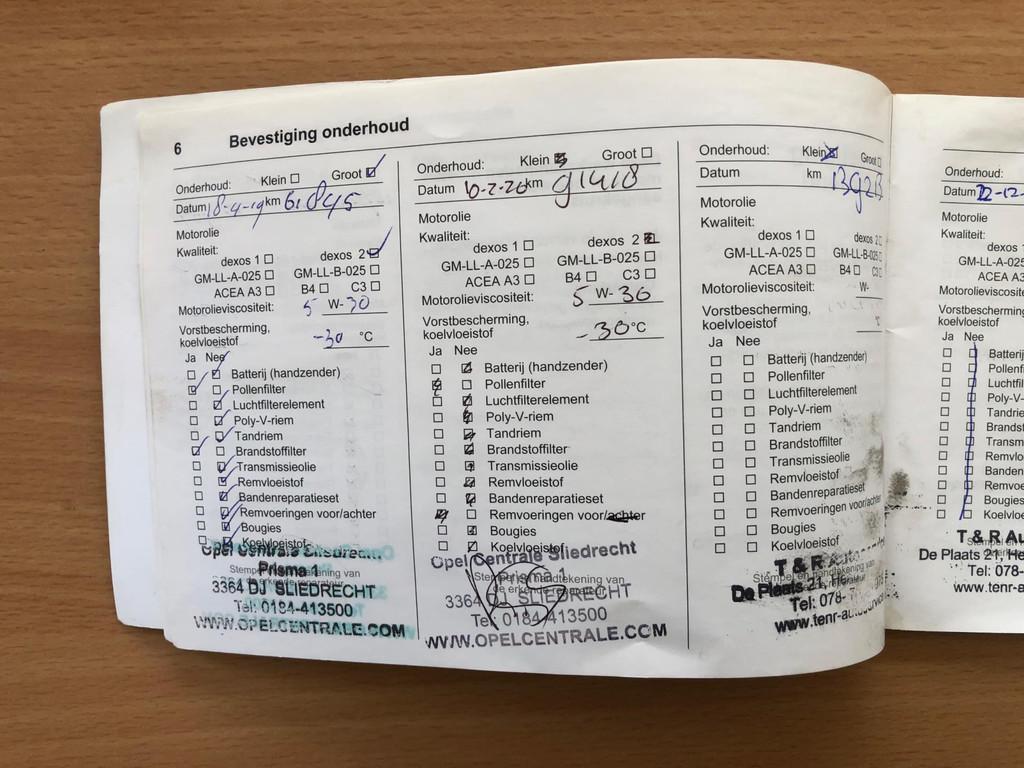 6 Bevestiging onderhoud
Onderhoud: Klein Groot
Datum 18-4-19 km 61845
Motorolie
Kwaliteit:
dexos 1 dexos 2
GM-LL-A-025 GM-LL-B-025
ACEA A3 B4 C3
Motorolieviscositeit: 5 W-30
Vorstbescherming,
koelvloeistof -30 °C
Ja Nee
Batterij (handzender)
Pollenfilter
Luchtfilterelement
Poly-V-riem
Tandriem
Brandstoffilter
Transmissieolie
Remvloeistof
Bandenreparatieset
Remvoeringen voor/achter
Bougies
Koelvloeistof
Opel Centrale Sliedrecht
Prisma 1
3364 DJ SLIEDRECHT
Tel: 0184-413500
WWW.OPELCENTRALE.COM
Onderhoud: Klein Groot
Datum 10-2-20 km 91418
Motorolie
Kwaliteit:
dexos 1 dexos 2
GM-LL-A-025 GM-LL-B-025
ACEA A3 B4 C3
Motorolieviscositeit: 5 W-30
Vorstbescherming,
koelvloeistof -30°C
Ja Nee
Batterij (handzender)
Pollenfilter
Luchtfilterelement
Poly-V-riem
Tandriem
Brandstoffilter
Transmissieolie
Remvloeistof
Bandenreparatieset
Remvoeringen voor/achter
Bougies
Koelvloeistof
Opel Centrale Sliedrecht
Stempel en handtekening van
de erkende reparateur
Prisma 1
3364 DJ SLIEDRECHT
Tel: 0184-413500
WWW.OPELCENTRALE.COM
Onderhoud: Klein Groot
Datum km
Motorolie
Kwaliteit:
dexos 1 dexos 2
GM-LL-A-025 GM-LL-B-025
ACEA A3 B4 C3
Motorolieviscositeit: W-
Vorstbescherming,
koelvloeistof °C
Ja Nee
Batterij (handzender)
Pollenfilter
Luchtfilterelement
Poly-V-riem
Tandriem
Brandstoffilter
Transmissieolie
Remvloeistof
Bandenreparatieset
Remvoeringen voor/achter
Bougies
Koelvloeistof
T & R
De Plaats 21,
Tel: 078-
www.tenr-
Onderhoud:
Datum 22-12-
Motorolie
Kwaliteit:
dexos 1
GM-LL-A-025
ACEA A3
Motorolieviscosite
Vorstbescherming,
koelvloeistof
Ja Nee
Batteri
Pollenf
Luchtfi
Poly-V-
Tandrie
Brands
Transm
Remvlo
Banden
Remvoe
Bougies
Koelvlo
T & R Au
De Plaats 21, He
Tel: 078-
www.tenr-